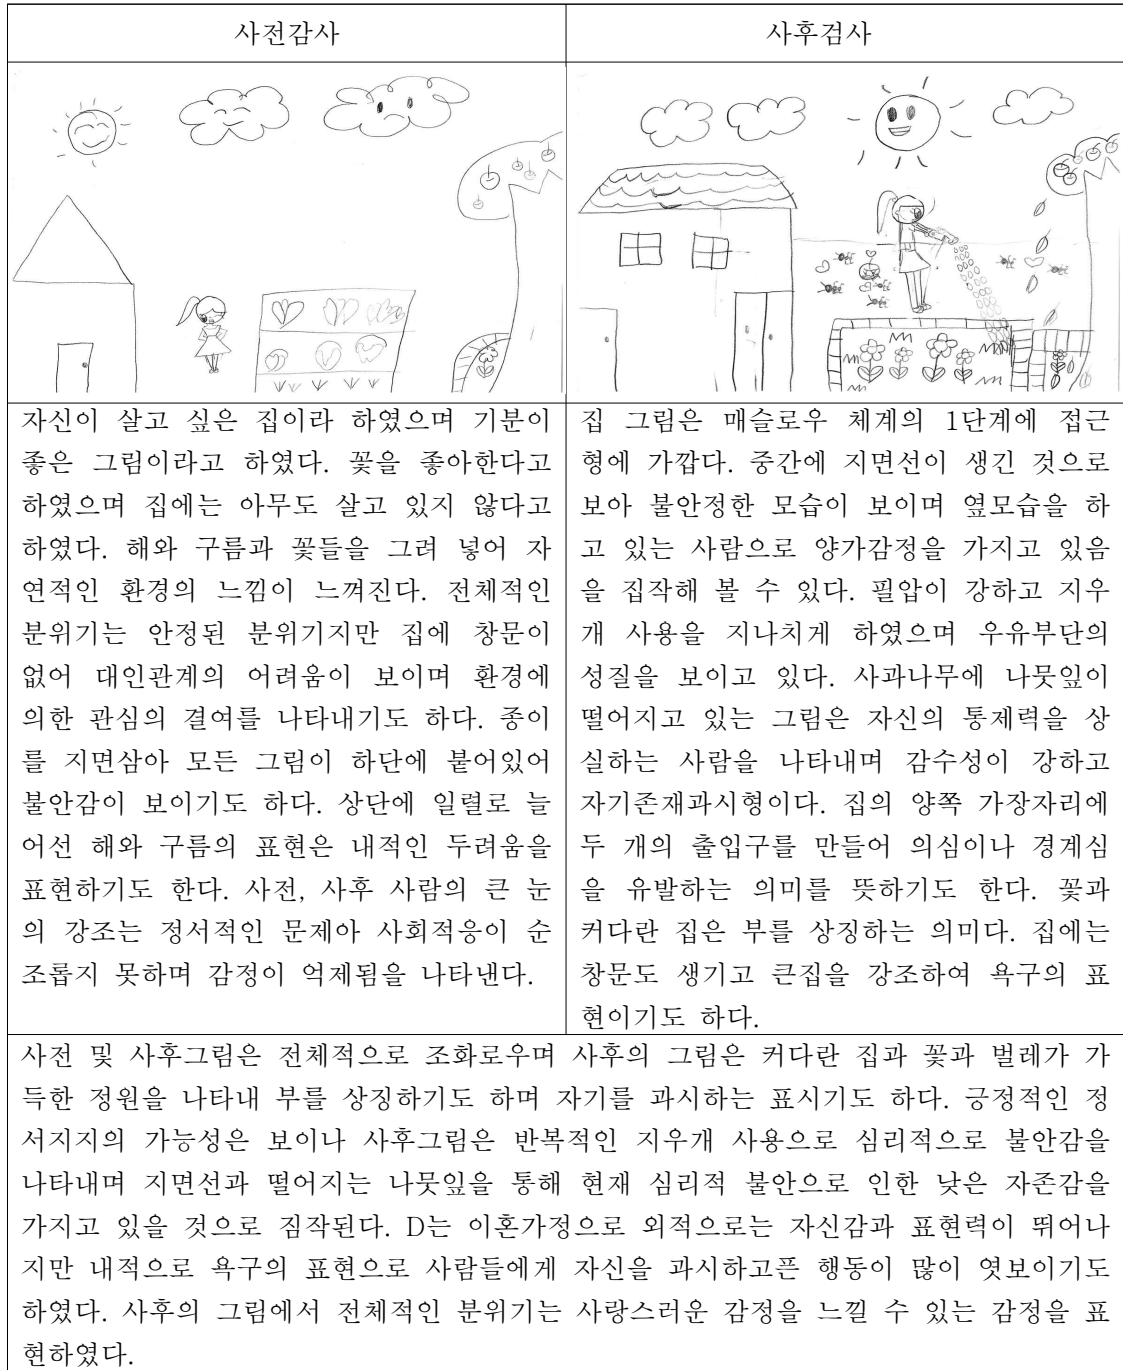 사전감사
사후검사
자신이 살고 싶은 집이라 하였으며 기분이
좋은 그림이라고 하였다. 꽃을 좋아한다고
하였으며 집에는 아무도 살고 있지 않다고
하였다. 해와 구름과 꽃들을 그려 넣어 자
연적인 환경의 느낌이 느껴진다. 전체적인
분위기는 안정된 분위기지만 집에 창문이
없어 대인관계의 어려움이 보이며 환경에
의한 관심의 결여를 나타내기도 하다. 종이
를 지면삼아 모든 그림이 하단에 붙어있어
불안감이 보이기도 하다. 상단에 일렬로 늘
어선 해와 구름의 표현은 내적인 두려움을
표현하기도 한다. 사전, 사후 사람의 큰 눈
의 강조는 정서적인 문제아 사회적응이 순
조롭지 못하며 감정이 억제됨을 나타낸다.
집 그림은 매슬로우 체계의 1단계에 접근
형에 가깝다. 중간에 지면선이 생긴 것으로
보아 불안정한 모습이 보이며 옆모습을 하
고 있는 사람으로 양가감정을 가지고 있음
을 집작해 볼 수 있다. 필압이 강하고 지우
개 사용을 지나치게 하였으며 우유부단의
성질을 보이고 있다. 사과나무에 나뭇잎이
떨어지고 있는 그림은 자신의 통제력을 상
실하는 사람을 나타내며 감수성이 강하고
자기존재과시형이다. 집의 양쪽 가장자리에
두 개의 출입구를 만들어 의심이나 경계심
을 유발하는 의미를 뜻하기도 한다. 꽃과
커다란 집은 부를 상징하는 의미다. 집에는
창문도 생기고 큰집을 강조하여 욕구의 표
현이기도 하다.
사전 및 사후그림은 전체적으로 조화로우며 사후의 그림은 커다란 집과 꽃과 벌레가 가
득한 정원을 나타내 부를 상징하기도 하며 자기를 과시하는 표시기도 하다. 긍정적인 정
서지지의 가능성은 보이나 사후그림은 반복적인 지우개 사용으로 심리적으로 불안감을
나타내며 지면선과 떨어지는 나뭇잎을 통해 현재 심리적 불안으로 인한 낮은 자존감을
가지고 있을 것으로 짐작된다. D는 이혼가정으로 외적으로는 자신감과 표현력이 뛰어나
지만 내적으로 욕구의 표현으로 사람들에게 자신을 과시하고픈 행동이 많이 엿보이기도
하였다. 사후의 그림에서 전체적인 분위기는 사랑스러운 감정을 느낄 수 있는 감정을 표
현하였다.